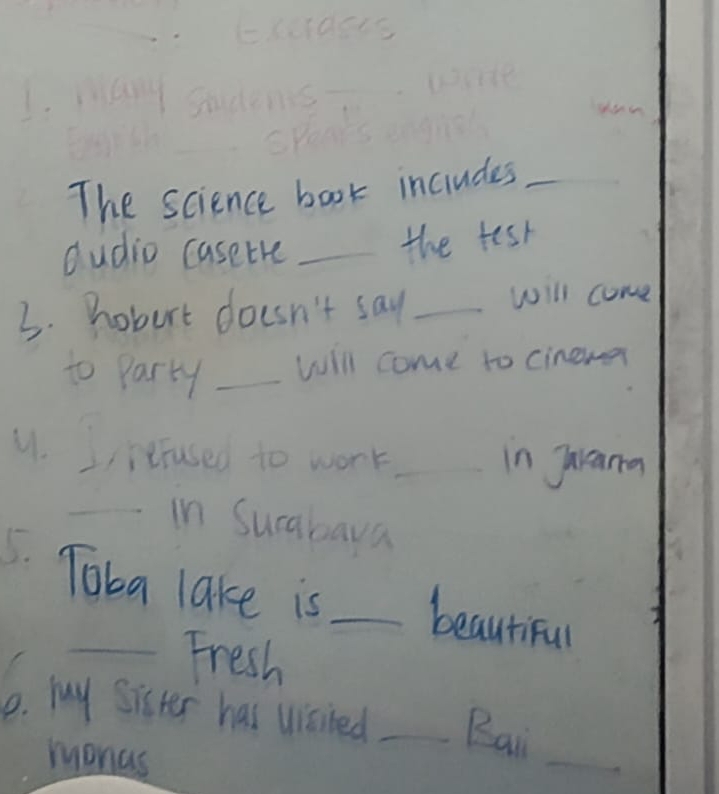 Excerases
1. many students ___. write
English ___ speaks english
The science book includes ___
audio casette ___ the test
3. Robert doesn't say ___ will come
to Party ___ will come to cinema
4. I, refused to work ___ in Jakarta
___ in Surabaya
5. Toba lake is ___ beautiful
___ Fresh
6. My Sister has visited ___ Bali ___
monas